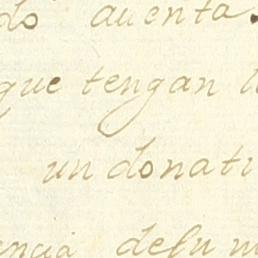 do auenta.
que tengan l
un donati
encia delu m